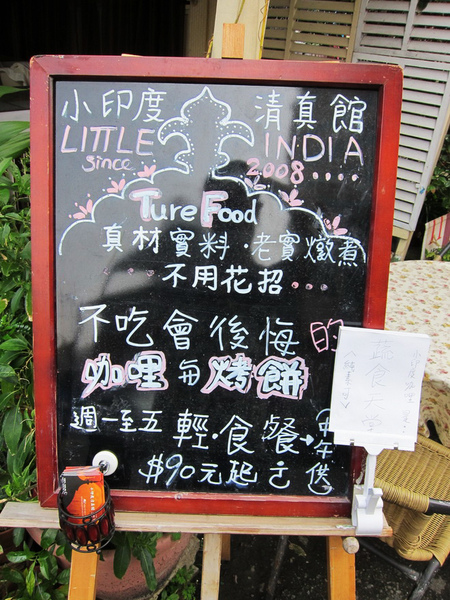 小印度 清真館
LITTLE INDIA
Since 2008....
Ture Food
真材實料·老實燉煮
不用花招...
不吃會後悔的
咖哩每烤餅
週一至五 輕·食餐→(中午供)
$90元起
蔬食